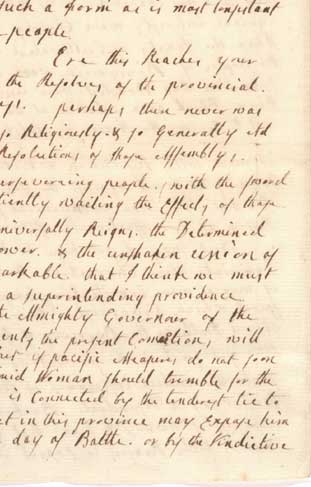 such a form as is most Consistant
people.
Ere this Reaches your
the Resolves of the provincial
perhaps there never was
so Religiously & so Generally Ad
Resolutions of those Assemblys.
persevereing people, with the sword
tiently waiting the Effects of those
niversally Reigns. the Determined
ower. & the unshaken union of
arkable. that I think we must
a superintending providence
Almighty Governour of the
the present Comotion, will
if pacific Measures do not soon
Woman should tremble for the
is Connected by the tenderest tie to
in this province may Expose him
day of Battle. or by the Vindictive